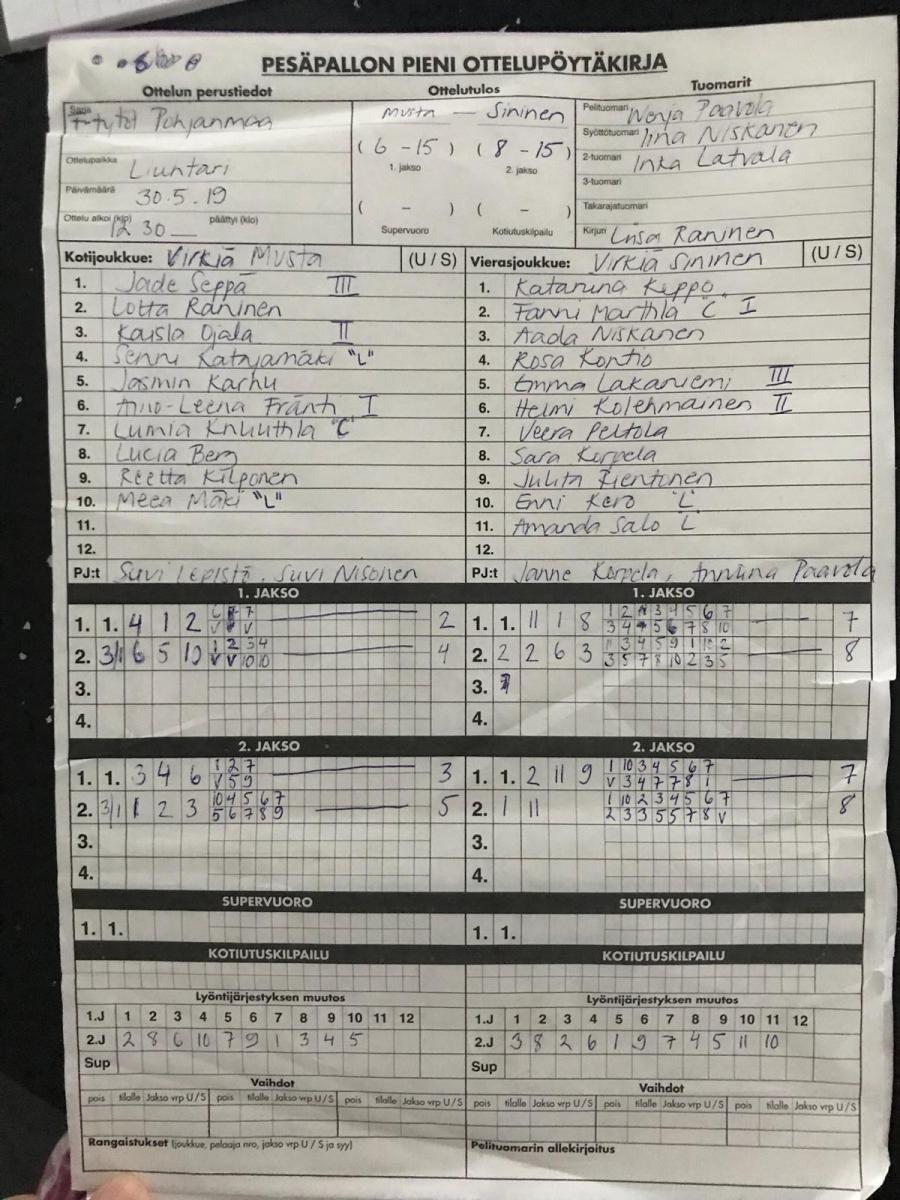 PESÄPALLON PIENI OTTELUPÖYTÄKIRJA
Ottelun perustiedot
Ottelutulos
Tuomarit
Sarja
F-tytöt Pohjanmaa
Musta — Sininen
Pelituomari
Syöttötuomari Iina Niskanen
(6 - 15) (8 - 15)
1. jakso 2. jakso
2-tuomari Inka Latvala
Ottelupaikka Liuntari
3-tuomari
Päivämäärä 30.5.19
Takarajatuomari
Ottelu alkoi (klo) 12 30 päättyi (klo)
( - ) ( - )
Supervuoro Kotiutuskilpailu
Kirjuri Raninen
Kotijoukkue: Virkiä Musta (U / S)
1. Jade Seppä III
2. Lotta Raninen
3. Kaisla Ojala II
4. Senni Katajamäki "L"
5. Jasmin Karhu
6. Aino-Leena Fränti I
7. Lumia Knuuttila "C"
8. Lucia Berg
9. Reetta Kilponen
10. Meea Mäki "L"
11.
12.
PJ:t Suvi Lepistö, Suvi Nisonen
Vierasjoukkue: Virkiä Sininen (U / S)
1. Katariina Keppo
2. Fanni Marttila "C" I
3. Aada Niskanen
4. Rosa Kontio
5. Emma Lakaniemi III
6. Helmi Kolehmainen II
7. Veera Peltola
8. Sara Korpela
9. Julita
10. Enni Kero "L"
11. Amanda Salo L
12.
PJ:t Janne Korpela, Anniina Paavola
1. JAKSO
1. 1. 4 1 2 2
2. 3/1 6 5 10 4
3.
4.
1. JAKSO
1. 1. 11 1 8 7
2. 2 2 6 3 8
3.
4.
2. JAKSO
1. 1. 3 4 6 3
1 2 7
V 5 9
2. 3/1 1 2 3 5
10 4 5 6 7
5 6 7 8 9
3.
4.
2. JAKSO
1. 1. 2 11 9 7
1 10 3 4 5 6 7
V 3 4 7 7 8 1
2. 1 11 8
1 10 2 3 4 5 6 7
2 3 3 5 5 7 8 V
3.
4.
SUPERVUORO
1. 1.
SUPERVUORO
1. 1.
KOTIUTUSKILPAILU
KOTIUTUSKILPAILU
Lyöntijärjestyksen muutos
1.J 1 2 3 4 5 6 7 8 9 10 11 12
2.J 2 8 6 10 7 9 1 3 4 5
Sup
Lyöntijärjestyksen muutos
1.J 1 2 3 4 5 6 7 8 9 10 11 12
2.J 3 8 2 6 1 9 7 4 5 11 10
Sup
Vaihdot
pois tilalle Jakso vrp U / S pois tilalle Jakso vrp U / S pois tilalle Jakso vrp U / S
Vaihdot
pois tilalle Jakso vrp U / S pois tilalle Jakso vrp U / S pois tilalle Jakso vrp U / S
Rangaistukset (joukkue, pelaaja nro, jakso vrp U / S ja syy)
Pelituomarin allekirjoitus